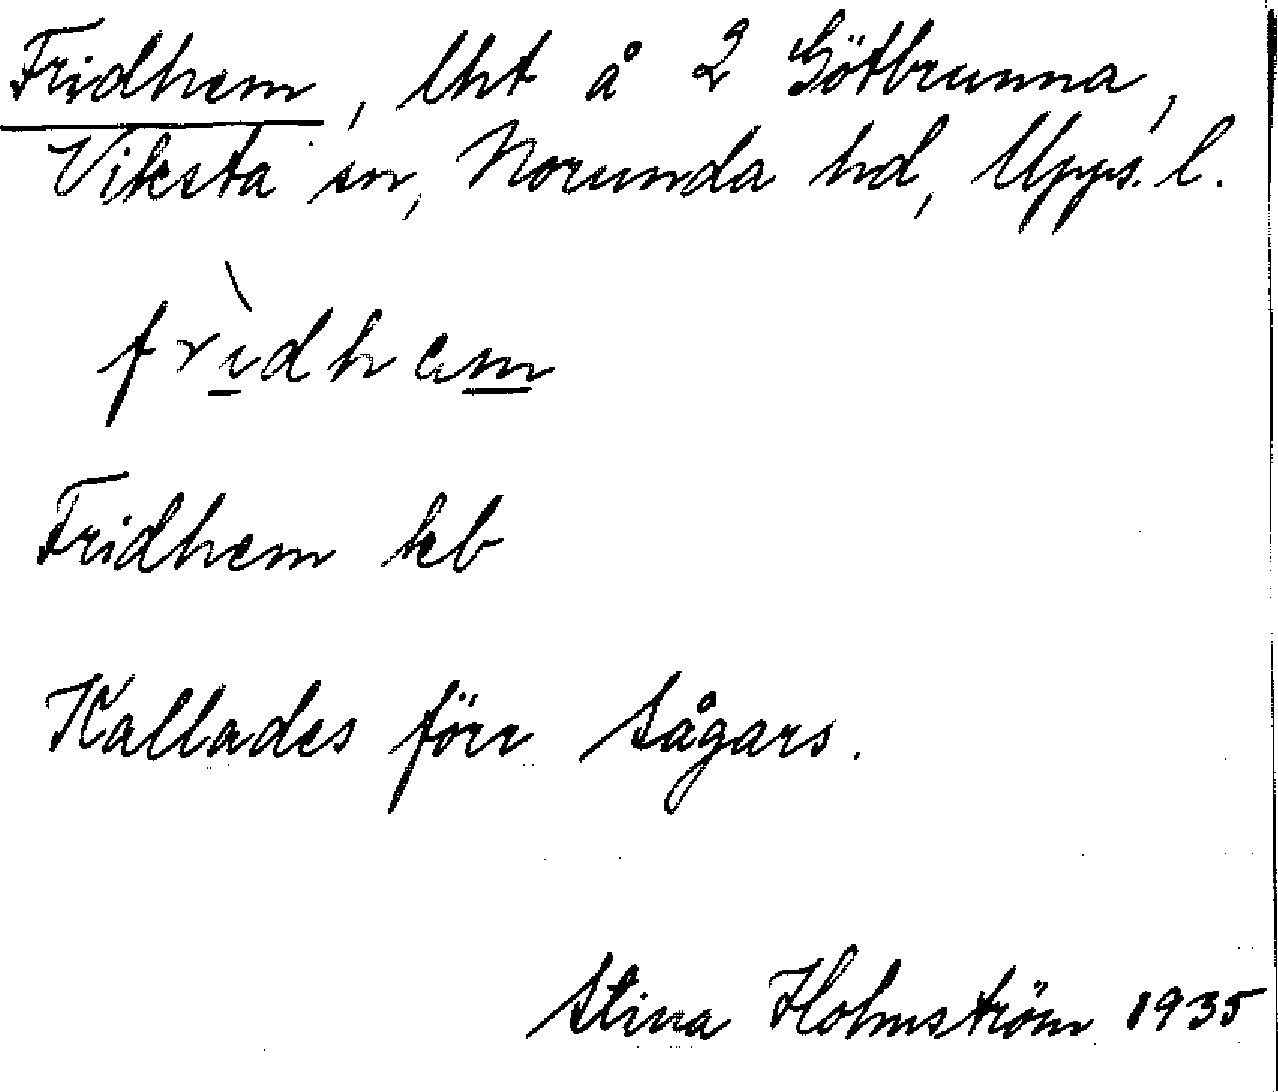 Fridhem, lht å 2 Götbrunna,
Viksta sn, Norunda hd, Upps. l.
frì̲dhem̲
Fridhem kb
Kallades förr Sågars.
Stina Holmström 1935